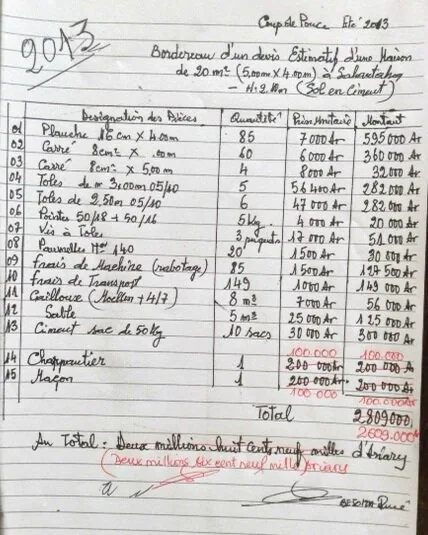 Coup de Pouce Eté 2013
2013
Bordereau d'un devis Estimatif d'une Maison
de 20 m² (5,00m x 4.00m) à
(Sol en Ciment)
Designation des Pièces Quantité Prix Unitaire Montant
01 Planche 16 cm x 4.00m 85 7000 Ar 595 000 Ar
02 Carré 8cm² x .00m 60 6000 Ar 360 000 Ar
03 Carré 8cm² x 5,00m 4 8000 Ar 32 000 Ar
04 Toles de m 3,00m 05/40 5 56400 Ar 282 000 Ar
05 Toles de 2,50m 05/40 6 47 000 Ar 282 000 Ar
06 Pointes 50/18 + 50/16 5 kg 4 000 Ar 20 000 Ar
07 Vis à Toles 3 paquets 17 000 Ar 51 000 Ar
08 Paumelles 140 20 1500 Ar 30 000 Ar
09 Frais de Machine (rabotage) 85 1500 Ar 127 500 Ar
10 Frais de Transport 149 1000 Ar 149 000 Ar
11 Cailloux (Moellon + 4/7) 8 m³ 7000 Ar 56 000 Ar
12 Sable 5 m³ 25 000 Ar 125 000 Ar
13 Ciment sac de 50kg 10 sacs 30 000 Ar 300 000 Ar
100.000 100.000
14 Charpentier 1 200 000 Ar 200 000 Ar
15 Maçon 1 200 000 Ar 200 000 Ar
100.000 100.000 Ar
Total 2809000
2609.000 Ar
Au Total : Deux millions huit cent neuf milles d'Ariary
(Deux millions six cent neuf mille) Ariary